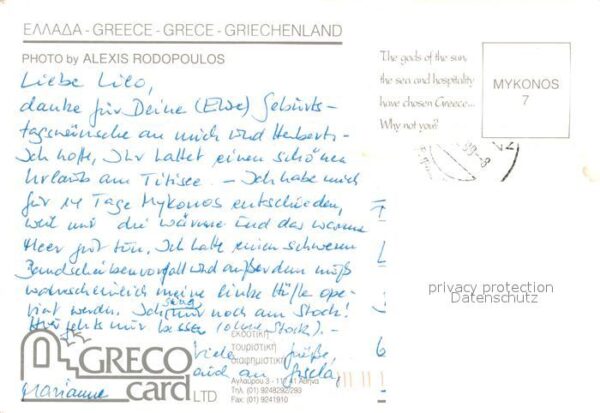 ΕΛΛΑΔΑ - GREECE - GRECE - GRIECHENLAND
PHOTO by ALEXIS RODOPOULOS
Liebe Lilo,
danke für Deine (Eure) Geburts-
tagswünsche an mich und Herbert -
Ich hoffe, Ihr hattet einen schönen
Urlaub am Titisee. - Ich habe mich
für 14 Tage Mykonos entschieden,
weil mir die Wärme und das warme
Meer gut tun. Ich hatte einen schweren
Bandscheibenvorfall und außerdem muß
wahrscheinlich meine linke Hüfte ope-
riert werden. Ich noch am Stock!
Hier geht's mir besser (ohne Stock). -
Viele Grüße,
an Gisela,
Marianne
The gods of the sun,
the sea and hospitality
have chosen Greece...
Why not you?
MYKONOS
7
privacy protection
Datenschutz
GRECO
card LTD
εκδοτική
τουριστική
διαφημιστική
Αγλαύρου 3 - 117 41 Αθήνα
Τηλ. (01) 9248292/293
Fax: (01) 9241910